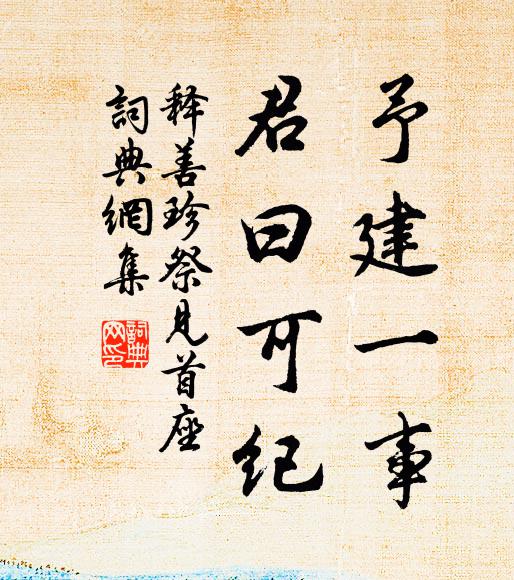 予建一事
君曰可纪
释善珍祭见首座
詞典網集
詞典網印